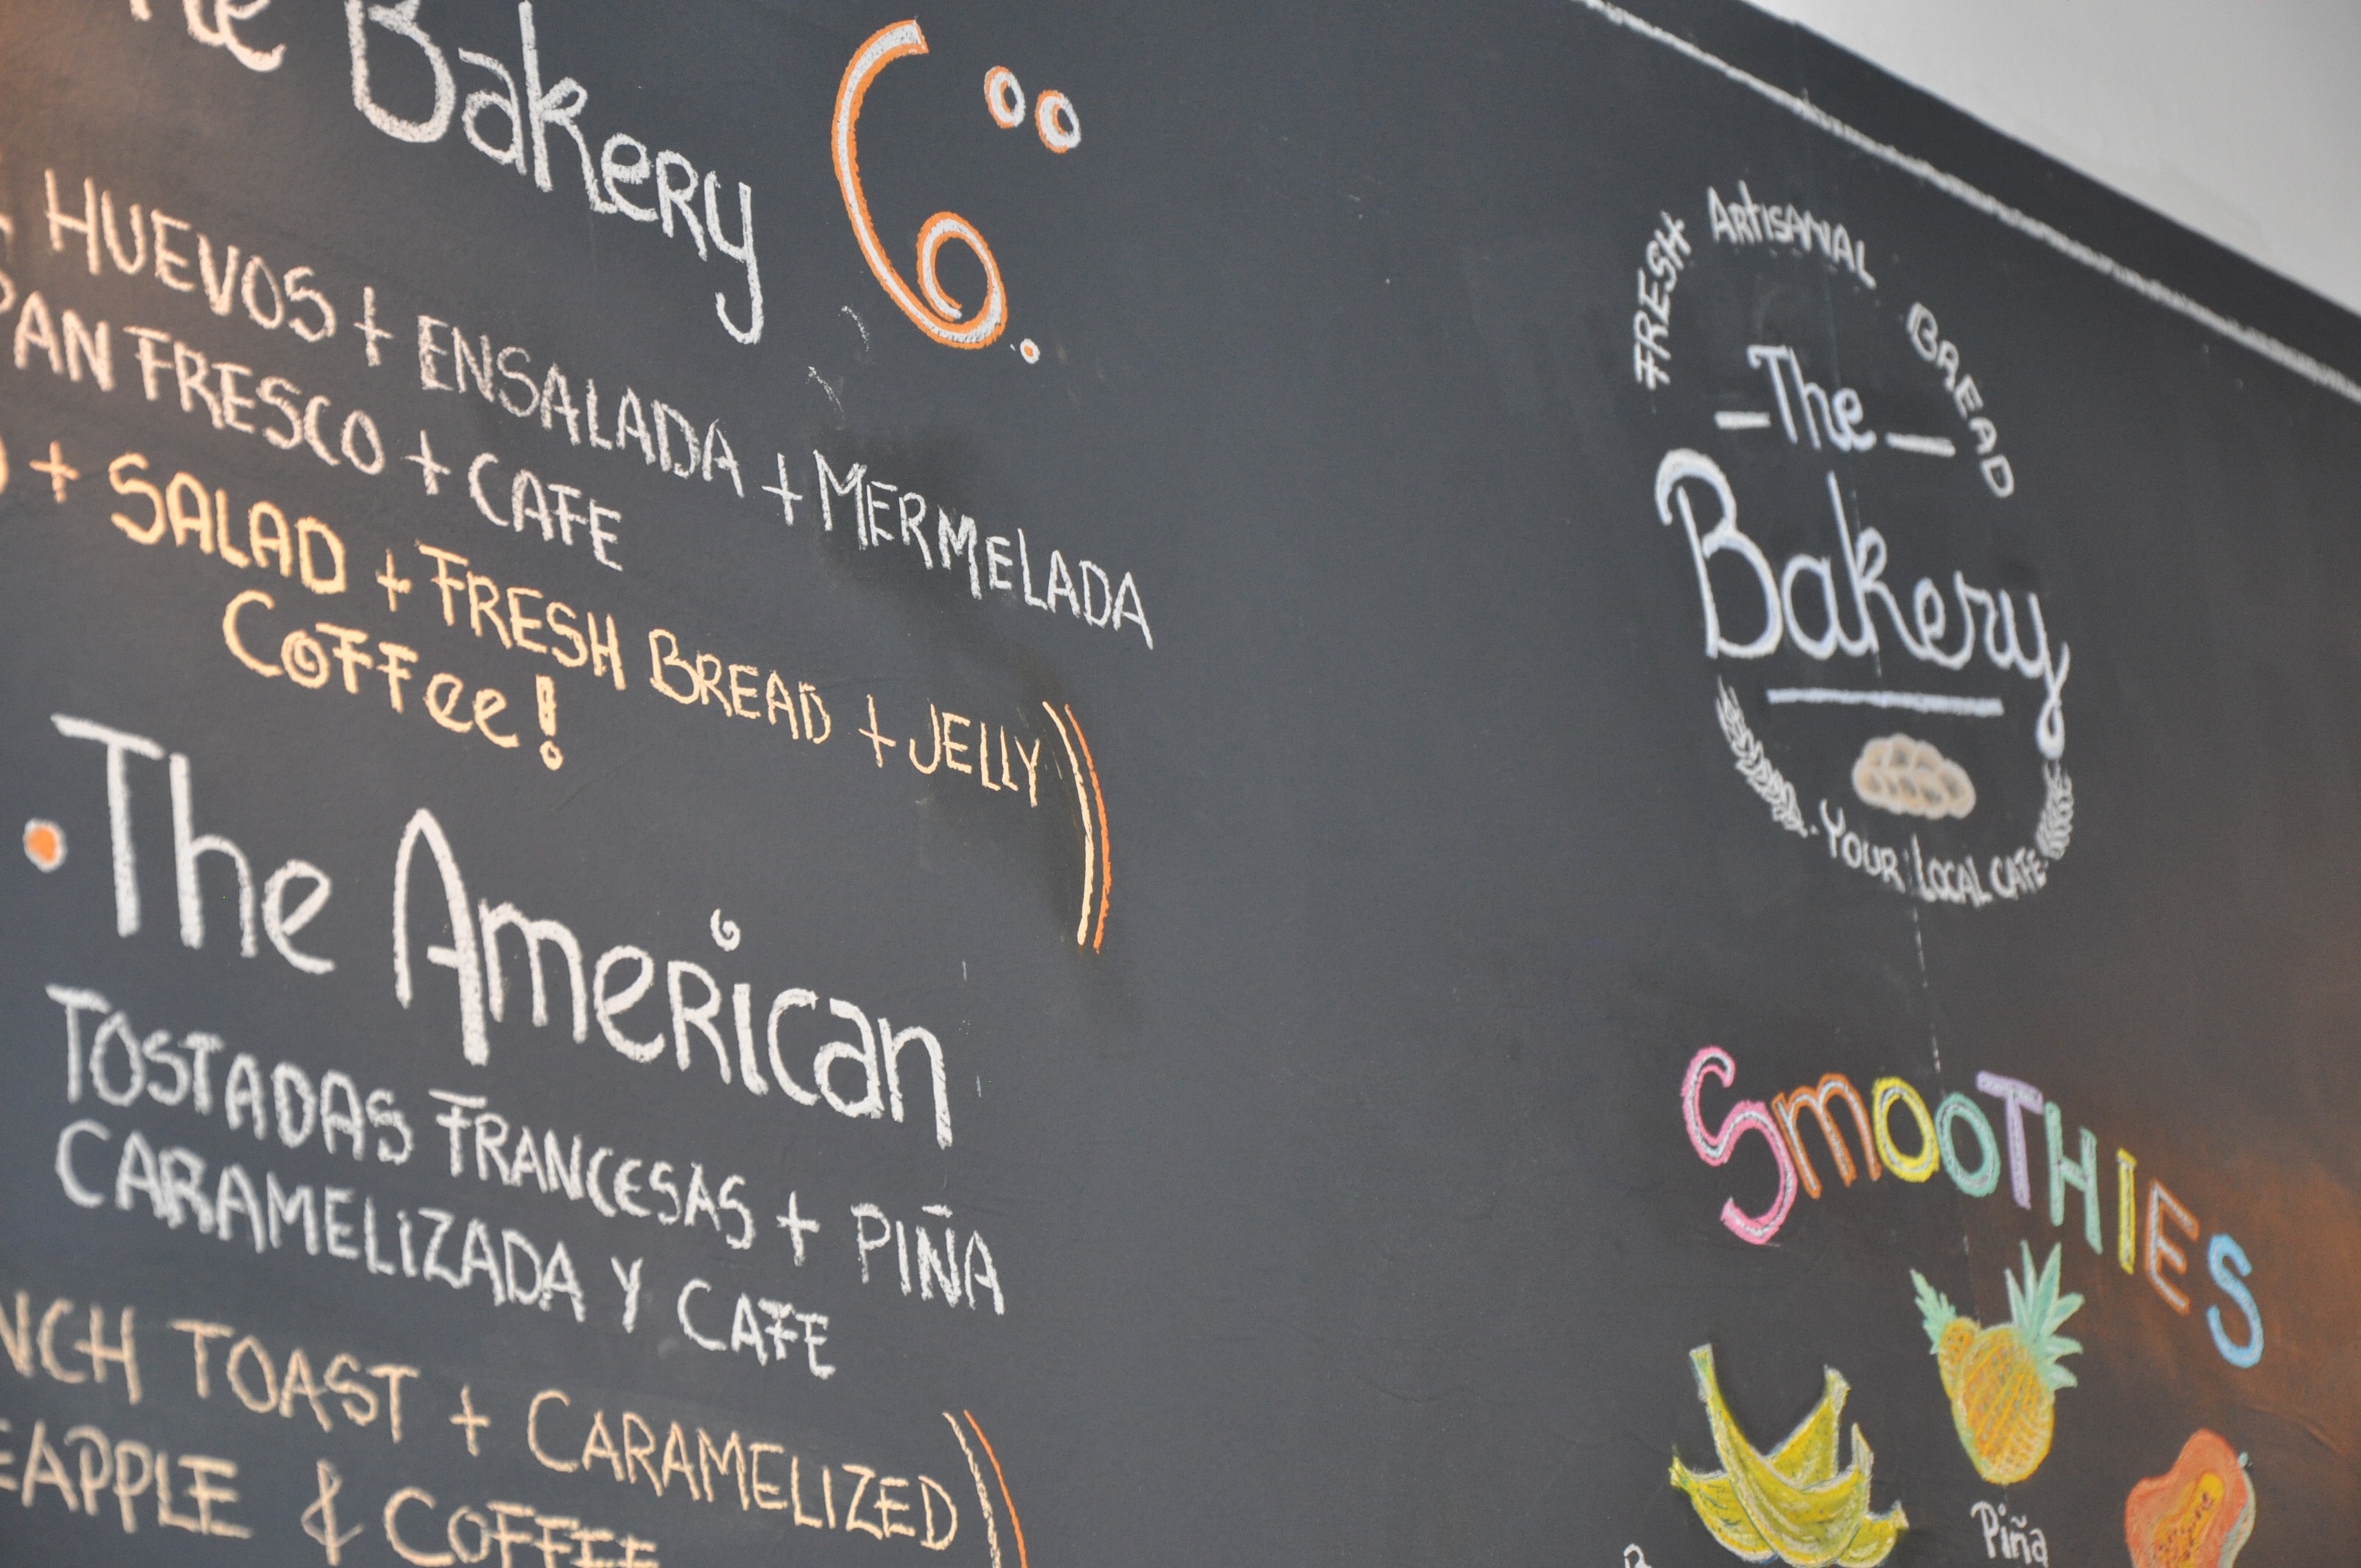 Bakery 6.00
HUEVOS + ENSALADA + MERMELADA
PAN FRESCO + CAFE
+ SALAD + FRESH BREAD + JELLY
COFFee!
The American
TOSTADAS FRANCESAS + PIÑA
CARAMELIZADA Y CAFE
NCH TOAST + CARAMELIZED
EAPPLE & COFFEE
FRESH ARTISANAL BREAD
The
Bakery
YOUR LOCAL CAFE
SMOOTHIES
Piña